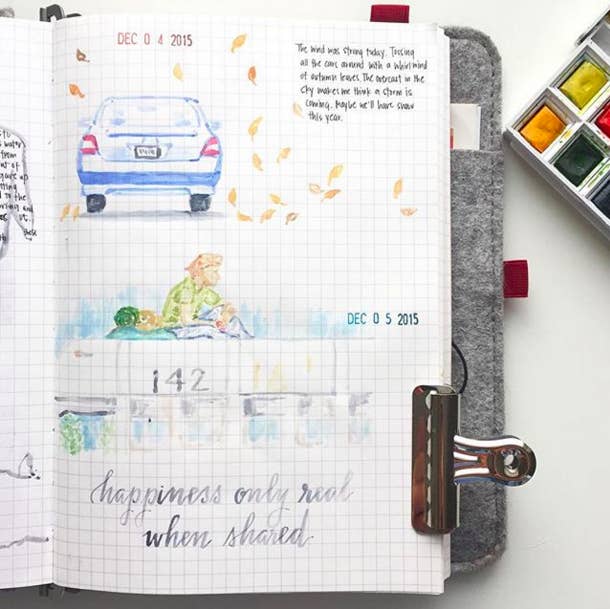 DEC 0 4 2015
The wind was strong today. Tossing
all the cars around with a whirlwind
of autumn leaves. The overcast in the
sky makes me think a storm is
coming. Maybe we'll have snow
this year.
DEC 0 5 2015
142
happiness only real
when shared.